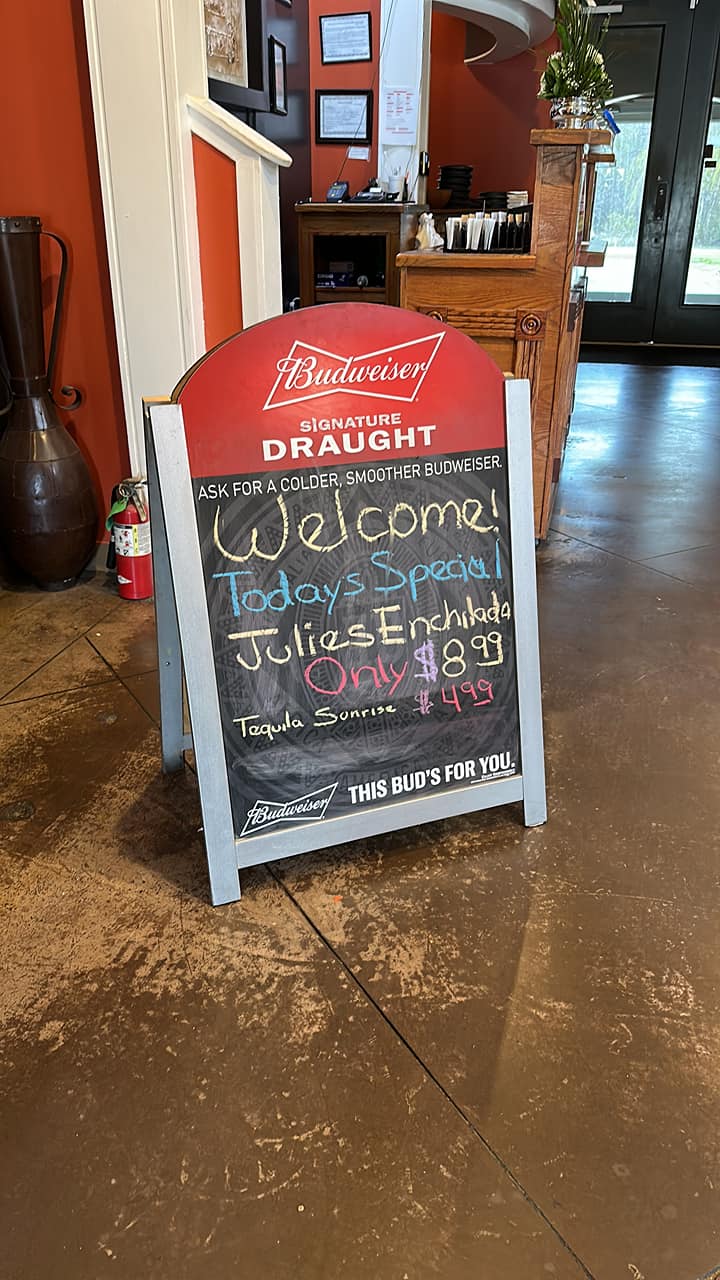 Budweiser
SIGNATURE
DRAUGHT
ASK FOR A COLDER, SMOOTHER BUDWEISER.
Welcome!
Todays Special
Julies Enchilada
Only $8.99
Tequila Sunrise $4.99
Budweiser
THIS BUD'S FOR YOU.